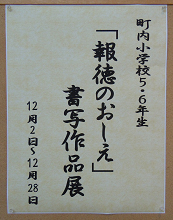 町内小学校5・6年生
「報徳のおしえ」
書写作品展
12月2日～12月28日